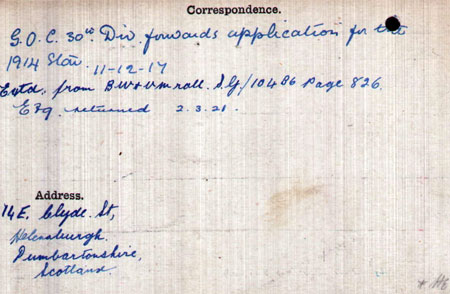 Correspondence.
G.O.C. 30th Div. forwards application for the
1914 Star. 11-12-17
Extd. from B.W.&V.M. roll. S.G/10486 Page 826.
returned 2.3.21.
Address.
74 E. Clyde. St,
Helensburgh.
Dumbartonshire,
Scotland